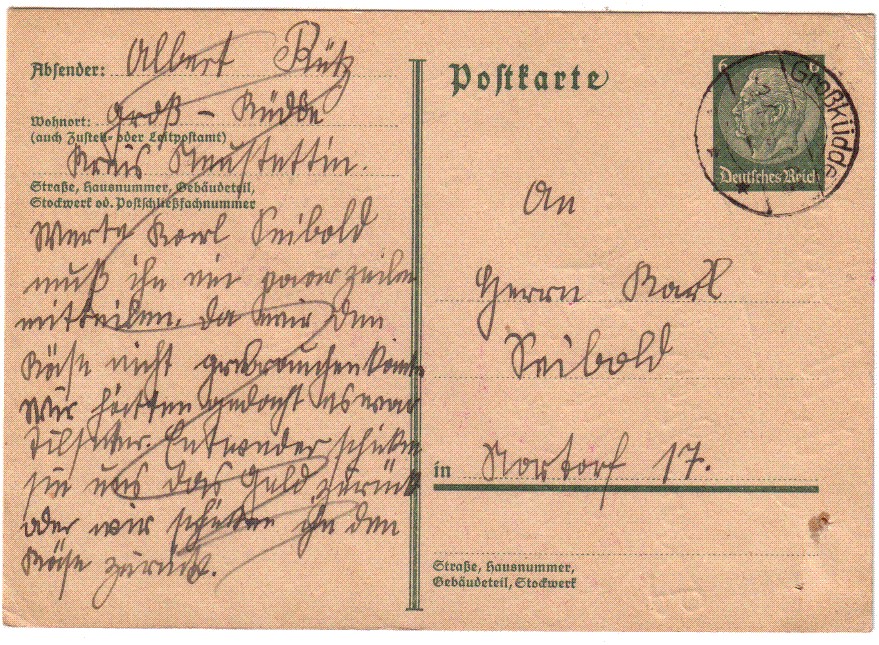 Absender: Albert Rütz
Wohnort: Groß - Küdde
(auch Zustell- oder Leitpostamt)
Kreis Neustettin.
Straße, Hausnummer, Gebäudeteil,
Stockwerk od. Postschließfachnummer
Werte Karl Seibold
muß ihn ein paar zeilen
mitteilen. da wir den
Käse nicht gebrauchen könte
Wir hätten gedacht es war
Tilsiter. Entweder schiken
sie uns das Geld zurück
oder wir schiken ihn den
Käse zurück.
Postkarte
6 6
Deutsches Reich
Großküdde
An
Herrn Karl
Seibold
in Nortorf 17.
Straße, Hausnummer,
Gebäudeteil, Stockwerk